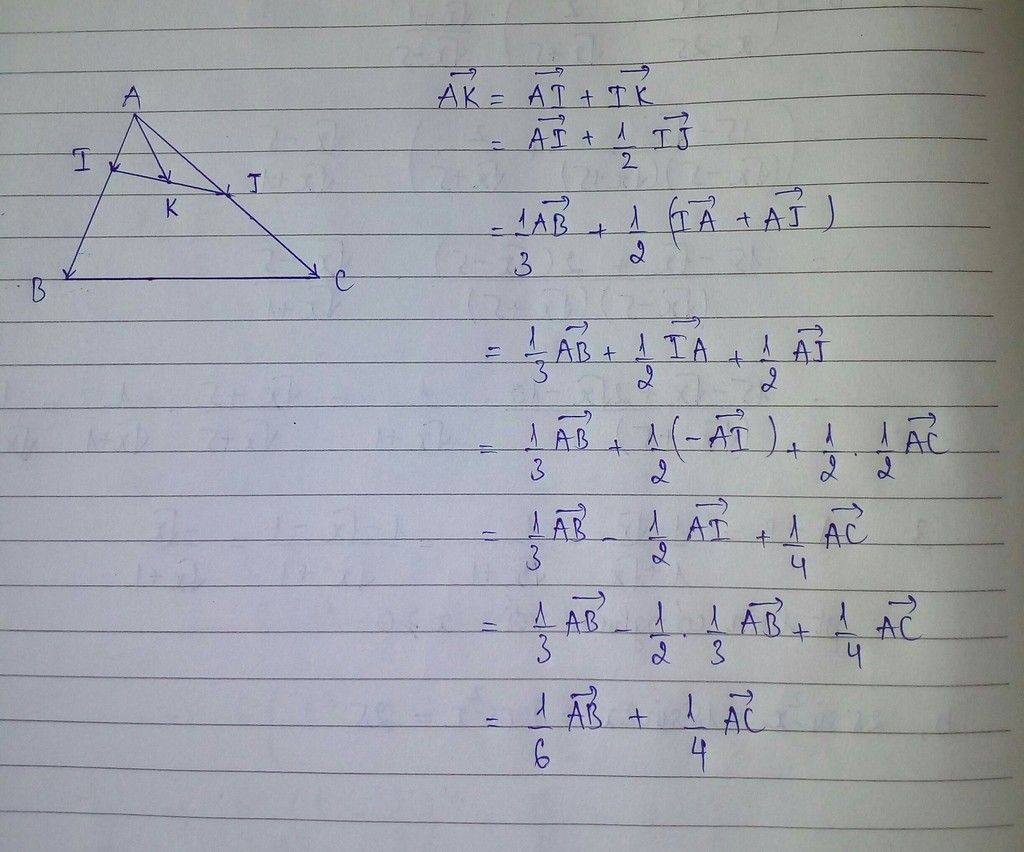 A
I
J
K
B
C
\overrightarrow{AK} = \overrightarrow{AI} + \overrightarrow{IK}
= \overrightarrow{AI} + \frac{1}{2} \overrightarrow{IJ}
= \frac{1}{3} \overrightarrow{AB} + \frac{1}{2} (\overrightarrow{IA} + \overrightarrow{AJ})
= \frac{1}{3} \overrightarrow{AB} + \frac{1}{2} \overrightarrow{IA} + \frac{1}{2} \overrightarrow{AJ}
= \frac{1}{3} \overrightarrow{AB} + \frac{1}{2} (-\overrightarrow{AI}) + \frac{1}{2} . \frac{1}{2} \overrightarrow{AC}
= \frac{1}{3} \overrightarrow{AB} - \frac{1}{2} \overrightarrow{AI} + \frac{1}{4} \overrightarrow{AC}
= \frac{1}{3} \overrightarrow{AB} - \frac{1}{2} . \frac{1}{3} \overrightarrow{AB} + \frac{1}{4} \overrightarrow{AC}
= \frac{1}{6} \overrightarrow{AB} + \frac{1}{4} \overrightarrow{AC}